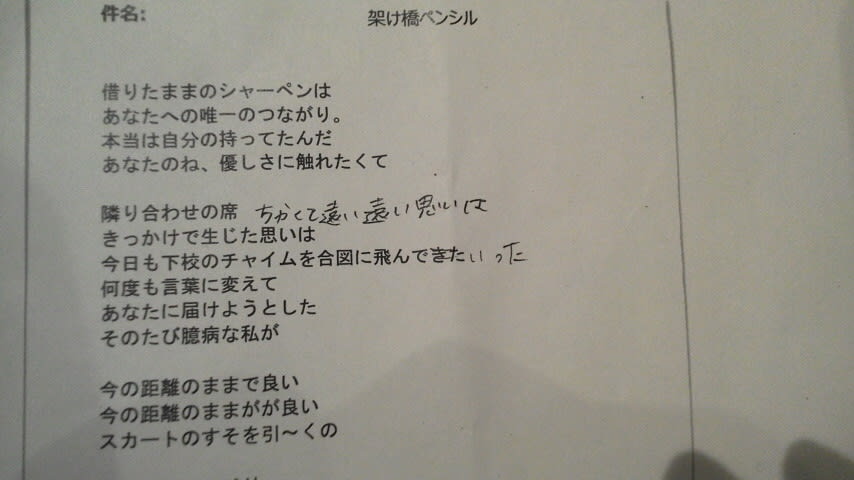 件名: 架け橋ペンシル
借りたままのシャーペンは
あなたへの唯一のつながり。
本当は自分の持ってたんだ
あなたのね、優しさに触れたくて
隣り合わせの席 ちかくて遠い遠い思いは
きっかけで生じた思いは
今日も下校のチャイムを合図に飛んできたいった
何度も言葉に変えて
あなたに届けようとした
そのたび臆病な私が
今の距離のままで良い
今の距離のままがが良い
スカートのすそを引〜くの